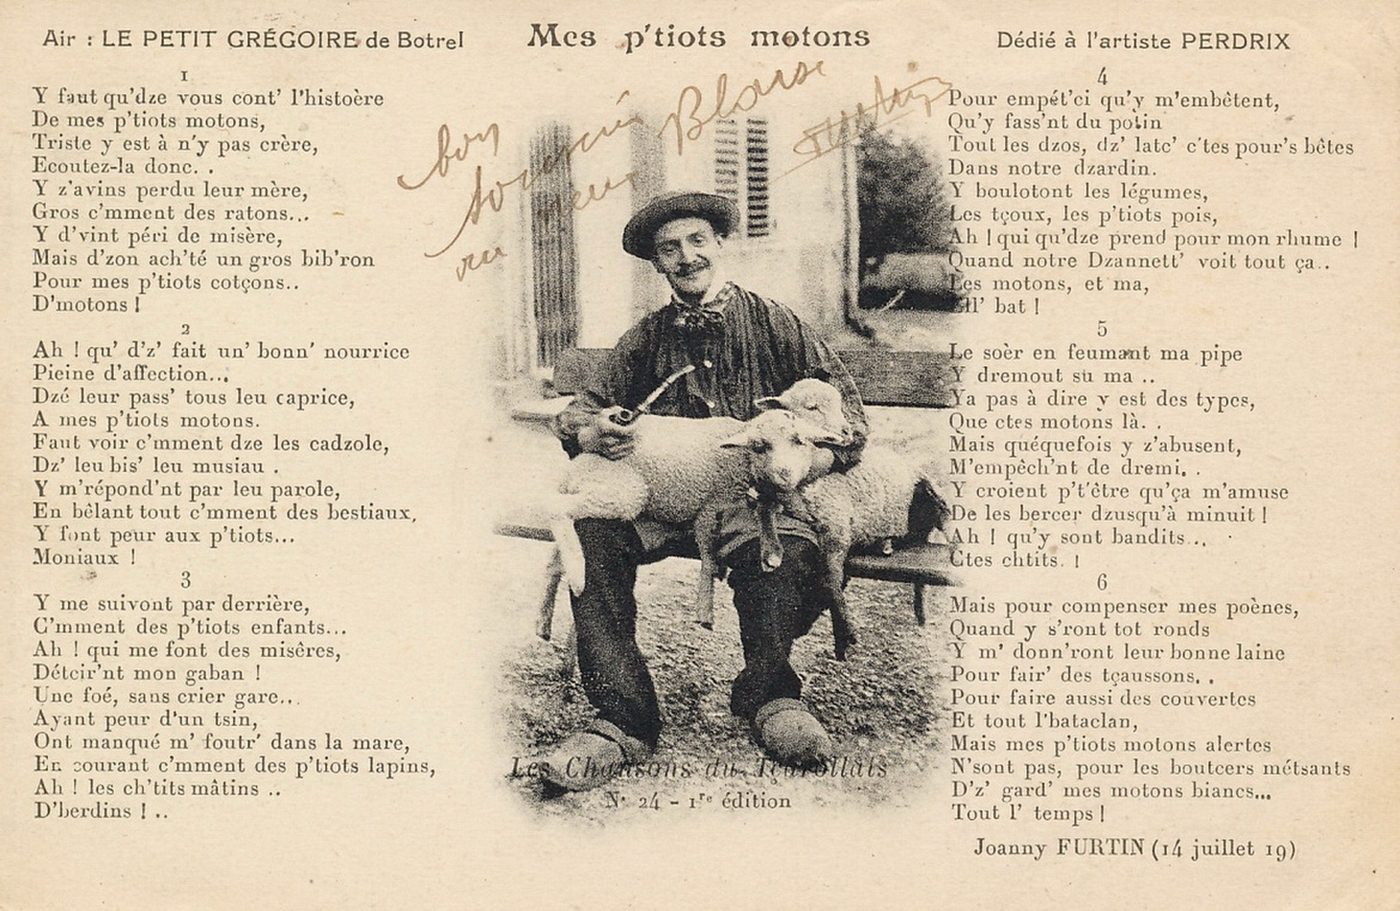 Air : LE PETIT GRÉGOIRE de Botrel
Mes p'tiots motons
Dédié à l'artiste PERDRIX
bon
souvenir
au neveu
Blaise
1
Y faut qu'dze vous cont' l'histoère
De mes p'tiots motons,
Triste y est à n'y pas crère,
Ecoutez-la donc. .
Y z'avins perdu leur mère,
Gros c'mment des ratons...
Y d'vint péri de misère,
Mais d'zon ach'té un gros bib'ron
Pour mes p'tiots cotçons..
D'motons !
2
Ah ! qu' d'z' fait un' bonn' nourrice
Pleine d'affection...
Dzé leur pass' tous leu caprice,
A mes p'tiots motons.
Faut voir c'mment dze les cadzole,
Dz' leu bis' leu musiau .
Y m'répond'nt par leu parole,
En bêlant tout c'mment des bestiaux,
Y font peur aux p'tiots...
Moniaux !
3
Y me suivont par derrière,
C'mment des p'tiots enfants...
Ah ! qui me font des misères,
Détcir'nt mon gaban !
Une foé, sans crier gare...
Ayant peur d'un tsin,
Ont manqué m' foutr' dans la mare,
En courant c'mment des p'tiots lapins,
Ah ! les ch'tits mâtins ..
D'berdins ! ..
4
Pour empét'ci qu'y m'embètent,
Qu'y fass'nt du potin
Tout les dzos, dz' latc' c'tes pour's bêtes
Dans notre dzardin.
Y boulotont les légumes,
Les tçoux, les p'tiots pois,
Ah ! qui qu'dze prend pour mon rhume !
Quand notre Dzannett' voit tout ça..
Les motons, et ma,
Ell' bat !
5
Le soèr en feumant ma pipe
Y dremout su ma ..
Ya pas à dire y est des types,
Que ctes motons là. .
Mais quéquefois y z'abusent,
M'empêch'nt de dremi. .
Y croient p't'être qu'ça m'amuse
De les bercer dzusqu'à minuit !
Ah ! qu'y sont bandits...
Ctes chtits. !
6
Mais pour compenser mes poènes,
Quand y s'ront tot ronds
Y m' donn'ront leur bonne laine
Pour fair' des tçaussons. .
Pour faire aussi des couvertes
Et tout l'bataclan,
Mais mes p'tiots motons alertes
N'sont pas, pour les boutcers métsants
D'z' gard' mes motons blancs...
Tout l' temps !
Joanny FURTIN (14 juillet 19)
Les Chansons du Tçarollais
N° 24 - 1re édition